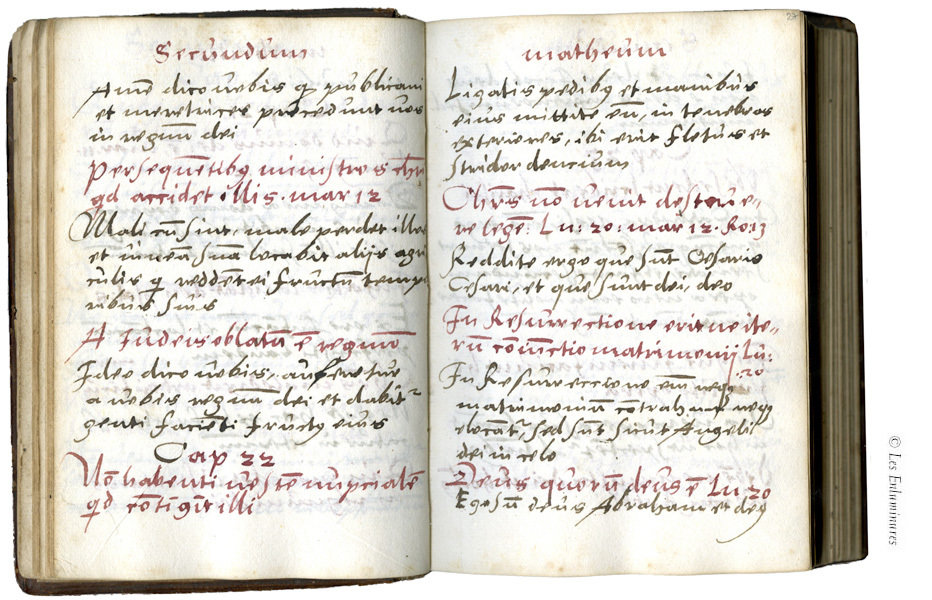 Secundum
Amē dico vobis q publicani
et meretrices precedunt vos
in regnū dei
Persequētibꝯ ministros chri
qd accidet illis . mar 12
Mali cū sint, male perdet illos
et vineā suā locabit alijs agri
culis q reddēt ei fructū tempo
ribus suis
A Iudeis oblatū ē regnū
Ideo dico vobis, auferetur
a vobis regnū dei et dabit
genti faciēti fructꝯ eius
Cap 22
Nō habenti vestem nupcialē
qd cōtigit illi
matheum
Ligatis pedibꝯ et manibus
eius mittite eū, in tenebras
exteriores, ibi erit fletus et
stridor dencium
Chrs nō venit destrue„
re legē: Lu: 20: mar 12. Ro: 13
Reddite ergo que sūt Cesaris
Cesari, et que sunt dei, deo
In Resurrectione erit ne ite„
rū coniūctio matrimonij Lu:
20
In Resurreccione eni neqꝫ
matrimoniū cōtrahunt neqꝫ
locāt, sed sūt sicut Angeli
dei in celo
Deus quorū deus ē Lu 20
Ego sū deus Abraham et deꝯ
© Les Enluminures